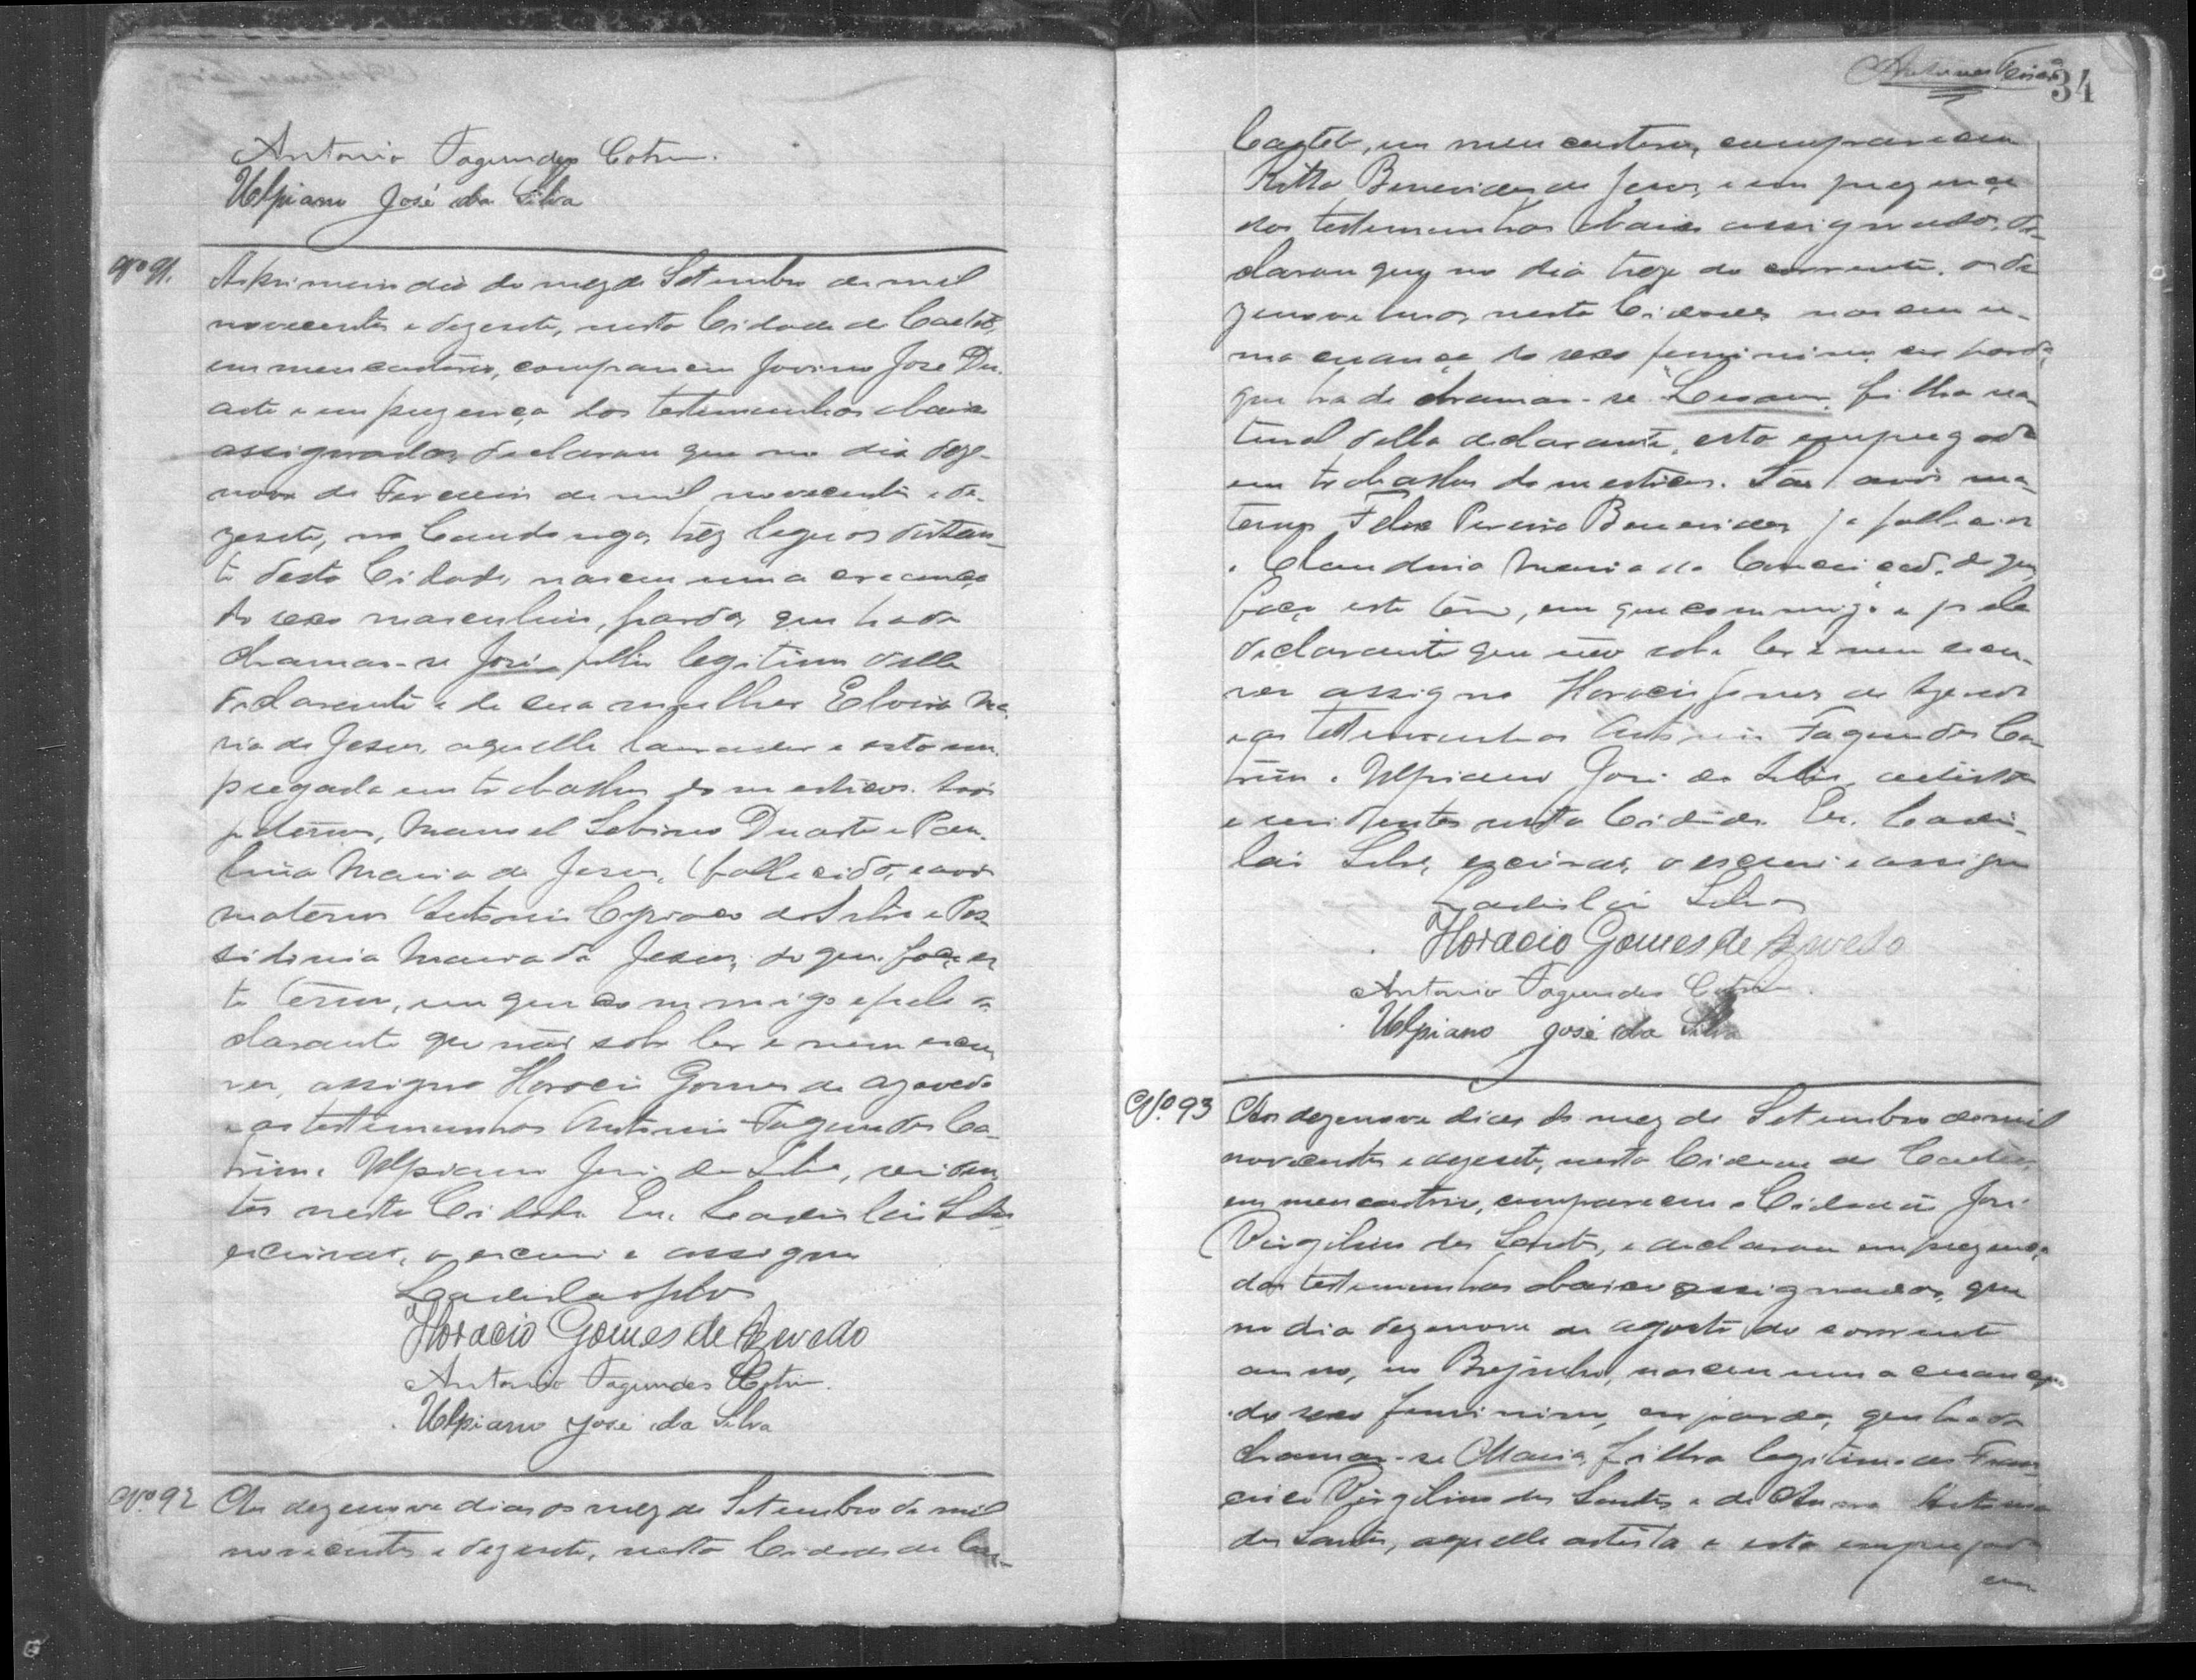 Antonio Fagundes Cotrim.
Ulpiano José da Silva
Nº 91.
Ao primeiro dia do mez de Setembro de mil
novecentos e dezesete, nesta Cidade de Caeteté,
em meu cartorio, compareceu Jovino José Du-
arte e em prezença das testemunhas abaixo
assignadas, declarou que no dia deze-
nove de Fevereiro de mil novecentos e de-
zesete, no tres leguas distan-
te desta Cidade, nasceu uma creança
do sexo masculino, parda, que hade
chamar-se José, filho legitimo delle
declarante e de sua mulher Elvira Ma-
ria de Jesus, aquelle lavrador e esta em-
pregada em trabalhos domesticos. Avós
paternos, Manoel Sabino Duarte e Pau-
lina Maria de Jesus, fallecidos, e avós
maternos Antonio Cypriano da Silva e Pos-
sidonia Maria de Jesus, do que faço es-
te termo, em que commigo e pelo de-
clarante que não sabe ler e nem escre-
ver, assigna Horacio Gomes de Azevedo
e as testemunhas Antonio Fagundes Co-
trim e Ulpiano José da Silva, residen-
tes nesta Cidade. Eu, Ladislau Silva,
escrivão, o escrevi e assigno
Ladislau Silva
Horacio Gomes de Azevedo
Antonio Fagundes Cotrim.
Ulpiano José da Silva
Nº 92
Aos dezenove dias do mez de Setembro de mil
novecentos e dezesete, nesta Cidade de Cae-
34
Caeteté, em meu cartorio, compareceu
Ritta Benevides de Jesus, e em prezença
das testemunhas abaixo assignadas, de-
clarou que no dia treze do corrente, as de-
zenove horas, nesta Cidade, nasceu u-
ma creança do sexo feminino, cor parda,
que hade chamar-se filha na-
tural della declarante, esta empregada
em trabalhos domesticos. São avós ma-
ternos, Felix Pereira Benevides, já fallecido
e Claudina Maria da Conceição, do que
faço este termo, em que commigo e pela
declarante que não sabe ler e nem escre-
ver assigna Horacio Gomes de Azevedo
e as testemunhas Antonio Fagundes Co-
trim e Ulpiano José da Silva, artistas
e residentes nesta Cidade. Eu, Ladis-
lau Silva, escrivão, o escrevi e assigno
Ladislau Silva
Horacio Gomes de Azevedo
Antonio Fagundes Cotrim.
Ulpiano José da Silva
Nº 93
Aos dezenove dias do mez de Setembro de mil
novecentos e dezesete, nesta Cidade de Caeteté,
em meu cartorio, compareceu o Cidadão José
Virgilino dos Santos, e declarou em prezença
das testemunhas abaixo assignadas, que
no dia dezenove de agosto do corrente
anno, no Brejinho, nasceu uma creança
do sexo feminino, cor parda, que hade
chamar-se Maria, filha legitima de Fran-
cisco Virgilino dos Santos e de Anna Antonia
dos Santos, aquelle artista e esta empregada
em